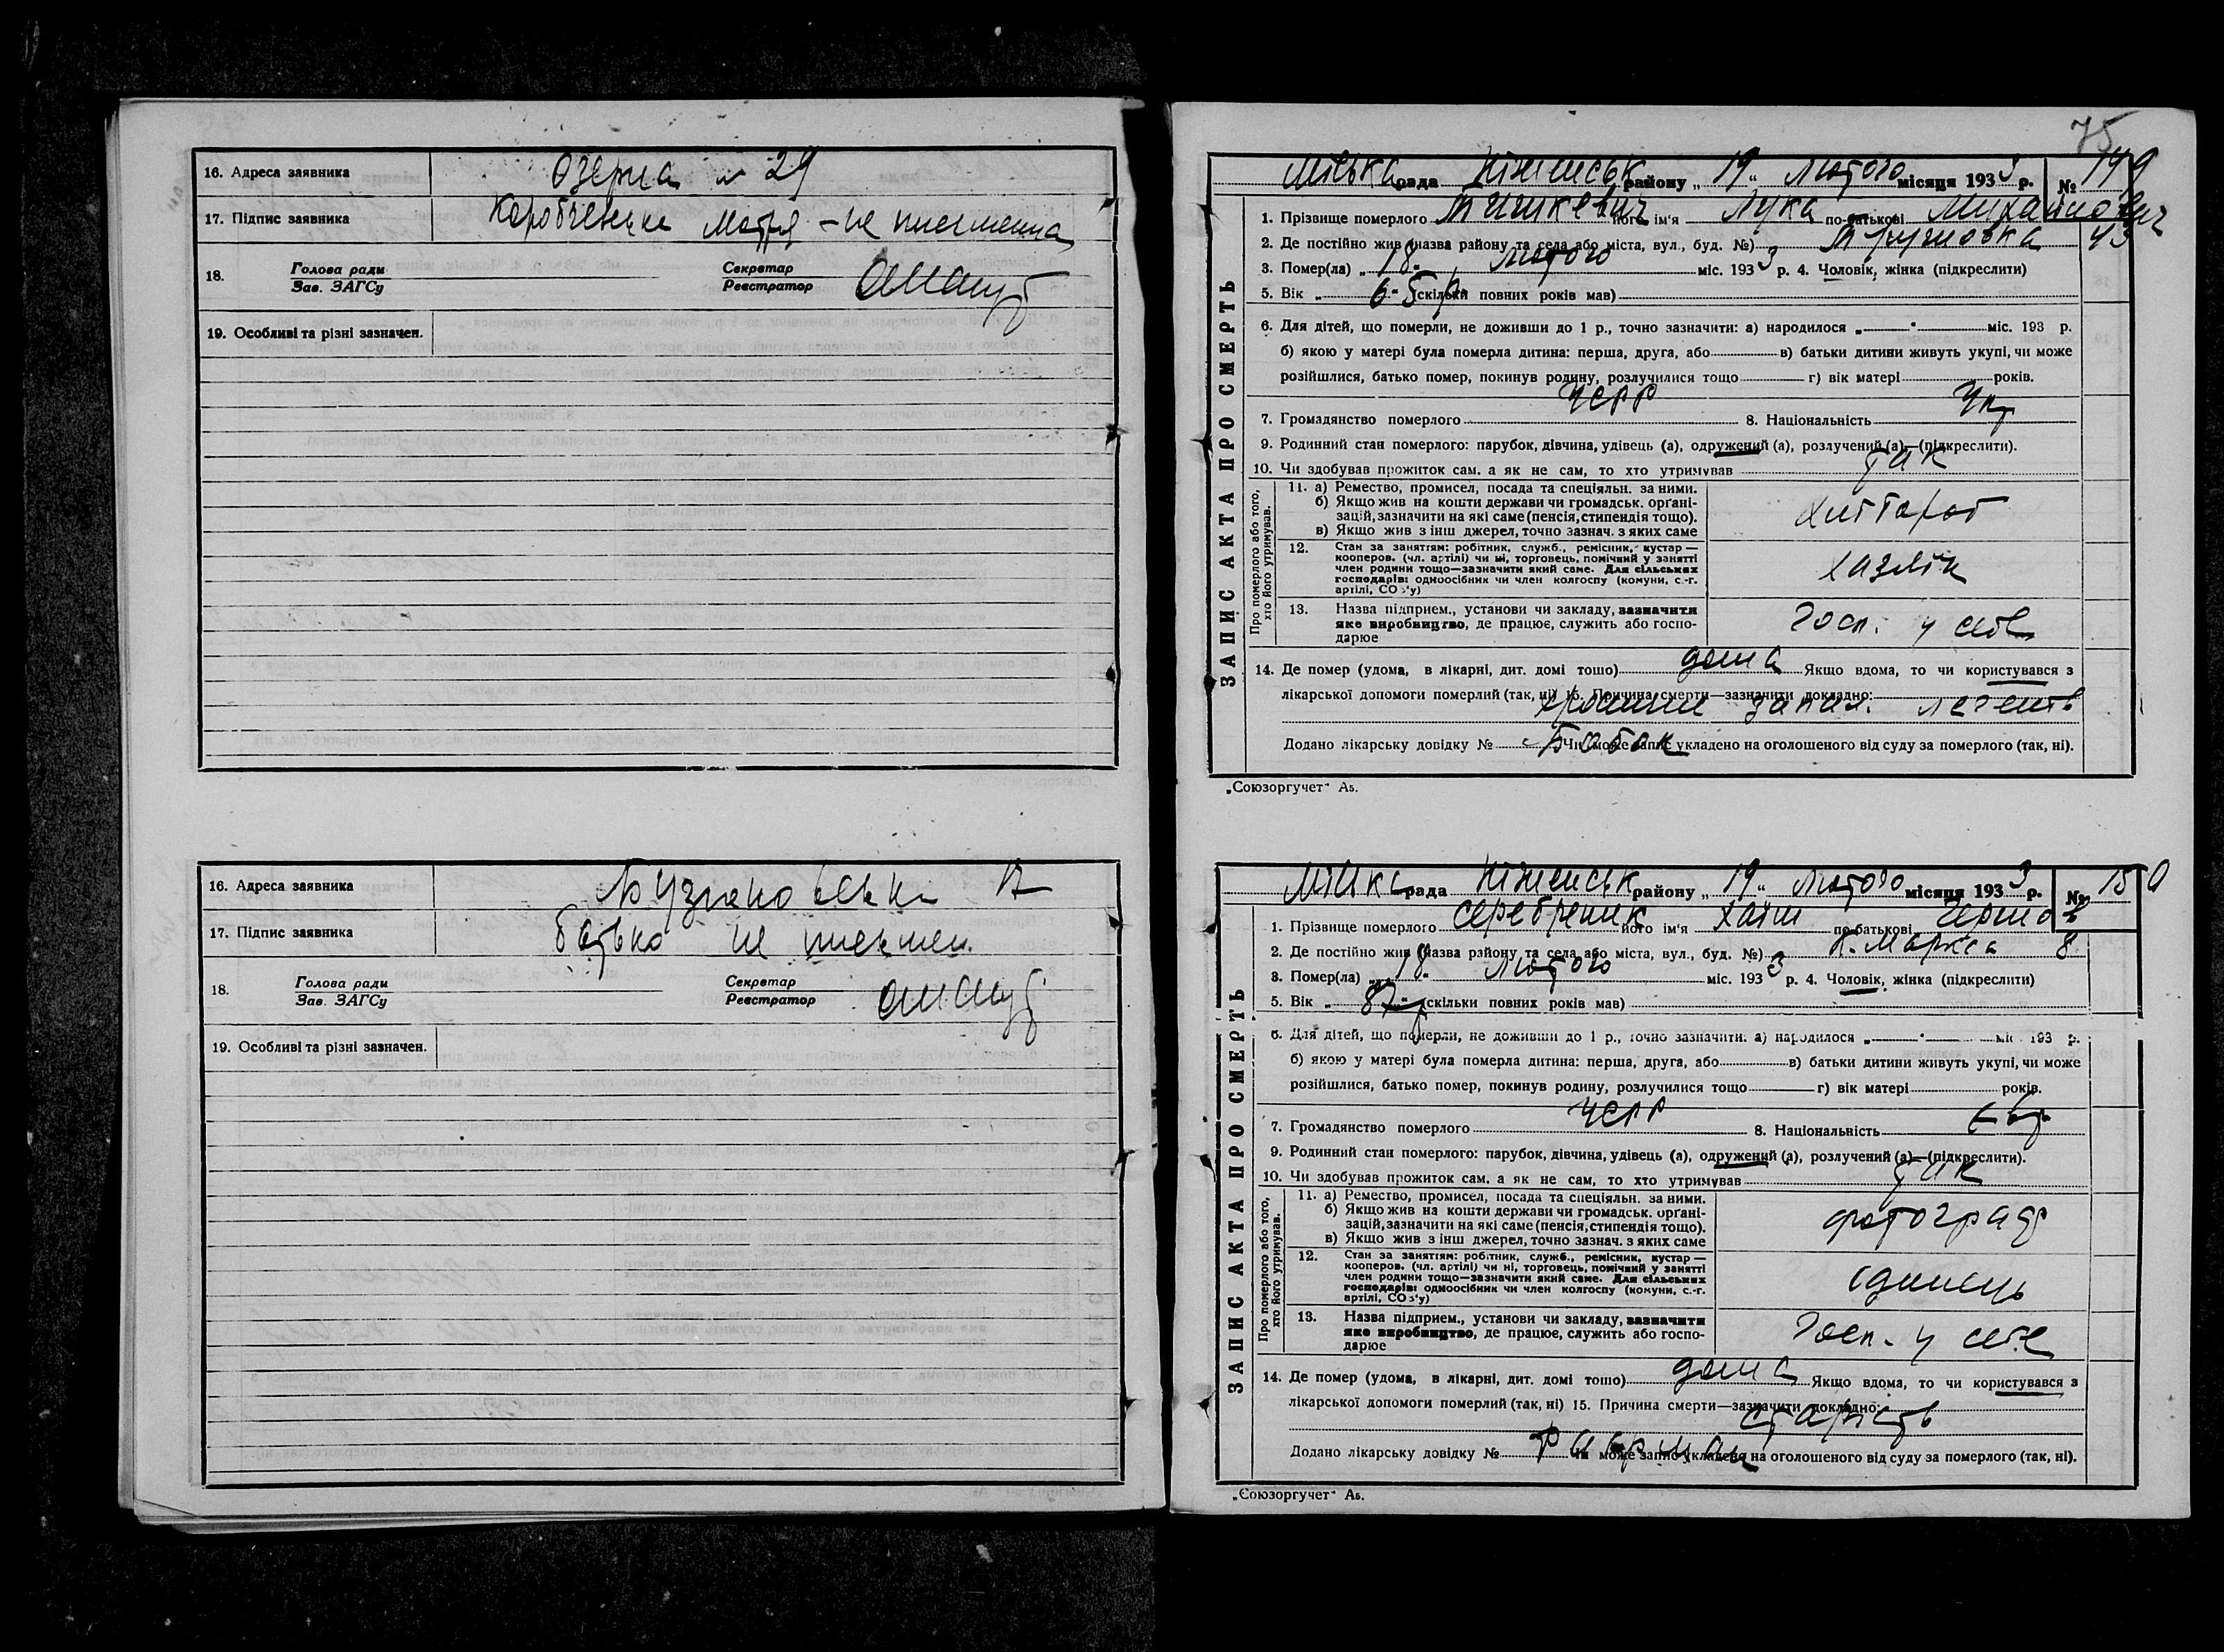 16. Адреса заявника Озерна № 29
17. Підпис заявника Коробченко Мотря – не письменна
18. Голова ради
Зав. ЗАГСу
Секретар
Реєстратор
19. Особливі та різні зазначен.
16. Адреса заявника 17
17. Підпис заявника батько не письмен.
18. Голова ради
Зав. ЗАГСу
Секретар
Реєстратор
19. Особливі та різні зазначен.
75
ЗАПИС АКТА ПРО СМЕРТЬ
Міська рада Ніженськ району „19" Лютого місяця 1933 р. № 149
1. Прізвище померлого його ім'я Лука по-батькові Михайлович
2. Де постійно жив (назва району та села або міста, вул., буд. №) 43
3. Помер(ла) „18" Лютого міс. 1933 р. 4. Чоловік, жінка (підкреслити)
5. Вік „65 р. (скільки повних років мав)
6. Для дітей, що померли, не доживши до 1 р., точно зазначити: а) народилося „ " міс. 193 р.
б) якою у матері була померла дитина: перша, друга, або в) батьки дитини живуть укупі, чи може
розійшлися, батько помер, покинув родину, розлучилися тощо г) вік матері років.
7. Громадянство померлого УСРР 8. Національність Укр
9. Родинний стан померлого: парубок, дівчина, удівець (а), одружений (а), розлучений (а)—(підкреслити).
10. Чи здобував прожиток сам, а як не сам, то хто утримував так
Про померлого або того,
хто його утримував.
11. а) Ремество, промисел, посада та спеціяльн. за ними.
б) Якщо жив на кошти держави чи громадськ. органі-
зацій, зазначити на які саме (пенсія, стипендія тощо).
в) Якщо жив з інш джерел, точно зазнач. з яких саме
12. Стан за заняттям: робітник, служб., ремісник, кустар —
кооперов. (чл. артілі) чи ні, торговець, помічний у занятті
член родини тощо—зазначити який саме. Для сільських
господарів: одноосібник чи член колгоспу (комуни, с.-г.
артілі, СОЗ'у)
13. Назва підприєм., установи чи закладу, зазначити
яке виробництво, де працює, служить або госпо-
дарює
Госп. у себе
14. Де помер (удома, в лікарні, дит. домі тощо) дома Якщо вдома, то чи користувався з
лікарської допомоги померлий (так, ні) 15. Причина смерти—зазначити докладно:
запал. легенів
Додано лікарську довідку № Чи може запис укладено на оголошеного від суду за померлого (так, ні).
„Союзоргучет" Аз.
ЗАПИС АКТА ПРО СМЕРТЬ
Міська рада Ніженськ району „19" Лютого місяця 1933 р. № 150
1. Прізвище померлого Серебреник його ім'я Хаїм по-батькові
2. Де постійно жив (назва району та села або міста, вул., буд. №) К. Маркса 8
3. Помер(ла) „18" Лютого міс. 1933 р. 4. Чоловік, жінка (підкреслити)
5. Вік „87 р" (скільки повних років мав)
6. Для дітей, що померли, не доживши до 1 р., точно зазначити: а) народилося „ " міс. 193 р.
б) якою у матері була померла дитина: перша, друга, або в) батьки дитини живуть укупі, чи може
розійшлися, батько помер, покинув родину, розлучилися тощо г) вік матері років.
7. Громадянство померлого УСРР 8. Національність Євр
9. Родинний стан померлого: парубок, дівчина, удівець (а), одружений (а), розлучений (а)—(підкреслити).
10. Чи здобував прожиток сам, а як не сам, то хто утримував так
Про померлого або того,
хто його утримував.
11. а) Ремество, промисел, посада та спеціяльн. за ними.
б) Якщо жив на кошти держави чи громадськ. органі-
зацій, зазначити на які саме (пенсія, стипендія тощо).
в) Якщо жив з інш джерел, точно зазнач. з яких саме
фотограф
12. Стан за заняттям: робітник, служб., ремісник, кустар —
кооперов. (чл. артілі) чи ні, торговець, помічний у занятті
член родини тощо—зазначити який саме. Для сільських
господарів: одноосібник чи член колгоспу (комуни, с.-г.
артілі, СОЗ'у)
єдинець
13. Назва підприєм., установи чи закладу, зазначити
яке виробництво, де працює, служить або госпо-
дарює
Госп. у себе
14. Де помер (удома, в лікарні, дит. домі тощо) дома Якщо вдома, то чи користувався з
лікарської допомоги померлий (так, ні) 15. Причина смерти—зазначити докладно:
старість
Додано лікарську довідку № Чи може запис укладено на оголошеного від суду за померлого (так, ні).
„Союзоргучет" Аз.